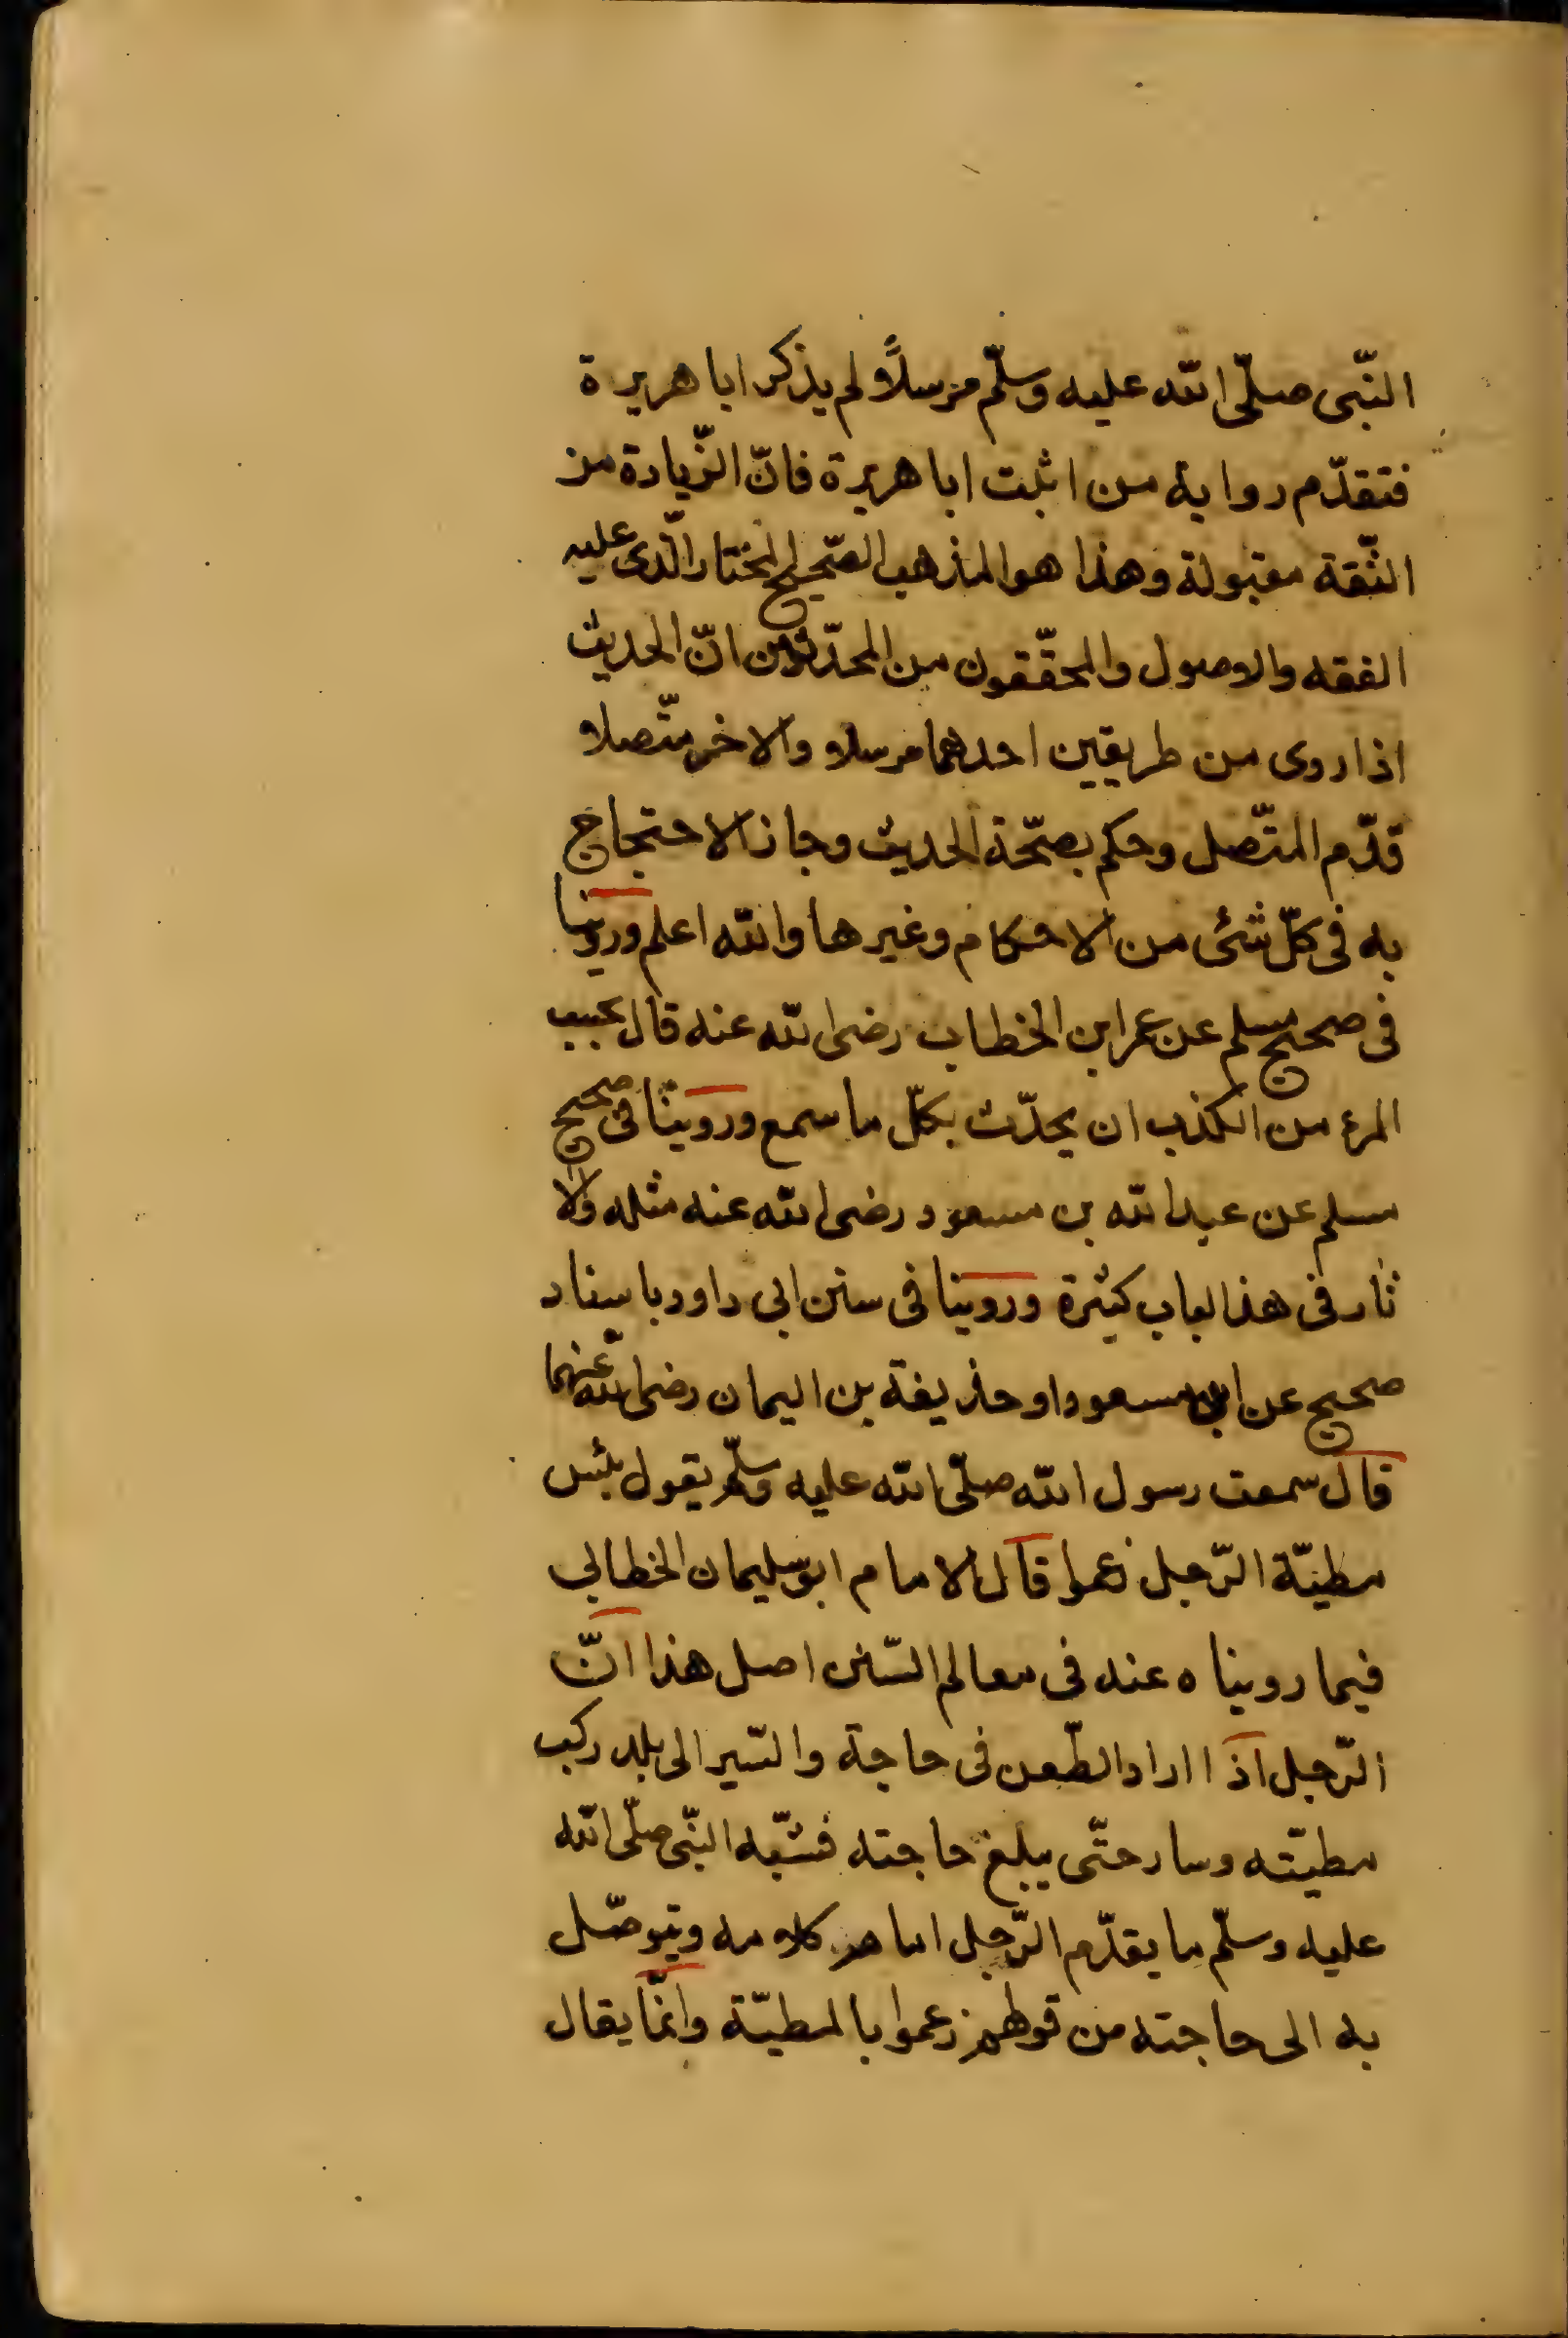 النّبى صلّى الله عليه وسلّم مرسلاً ولم يذكر ابا هريرة
فتقدّم رواية من اثبت ابا هريرة فانّ الزّيادة من
الثّقة مقبولة وهذا هو المذهب الصّحيح المختار الّذى عليه
الفقه والاصول والمحقّقون من المحدّثين انّ الحديث
اذا روى من طريقين احدهما مرسلا والاخر متّصلا
قدّم المتّصل وحكم بصحّة الحديث وجاز الاحتجاج
به فى كلّ شئ من الاحكام وغيرها والله اعلم وروينا
فى صحيح مسلم عن عمر ابن الخطاب رضى الله عنه قال بحسب
المرء من الكذب ان يحدّث بكلّ ما سمع وروينا فى صحيح
مسلم عن عبد الله بن مسعود رضى الله عنه مثله والا
ثار فى هذا لباب كثيرة وروينا فى سنن ابى داود باسناد
صحيح عن ابى مسعود او حذيفة بن اليمان رضى الله عنهما
قال سمعت رسول الله صلّى الله عليه وسلّم يقول بئس
مطيّة الرّجل زعموا قال الامام ابو سليمان الخطابى
فيما رويناه عنه فى معالم السّنن اصل هذا انّ
الرّجل اذا اراد الطّعن فى حاجة والسّير الى بلد ركب
مطيّته وسار حتّى يبلغ حاجته فشبّه النبّى صلّى الله
عليه وسلّم ما يقدّم الرّجل امام كلامه ويتوصّل
به الى حاجته من قولهم زعموا بالمطيّة وانّما يقال